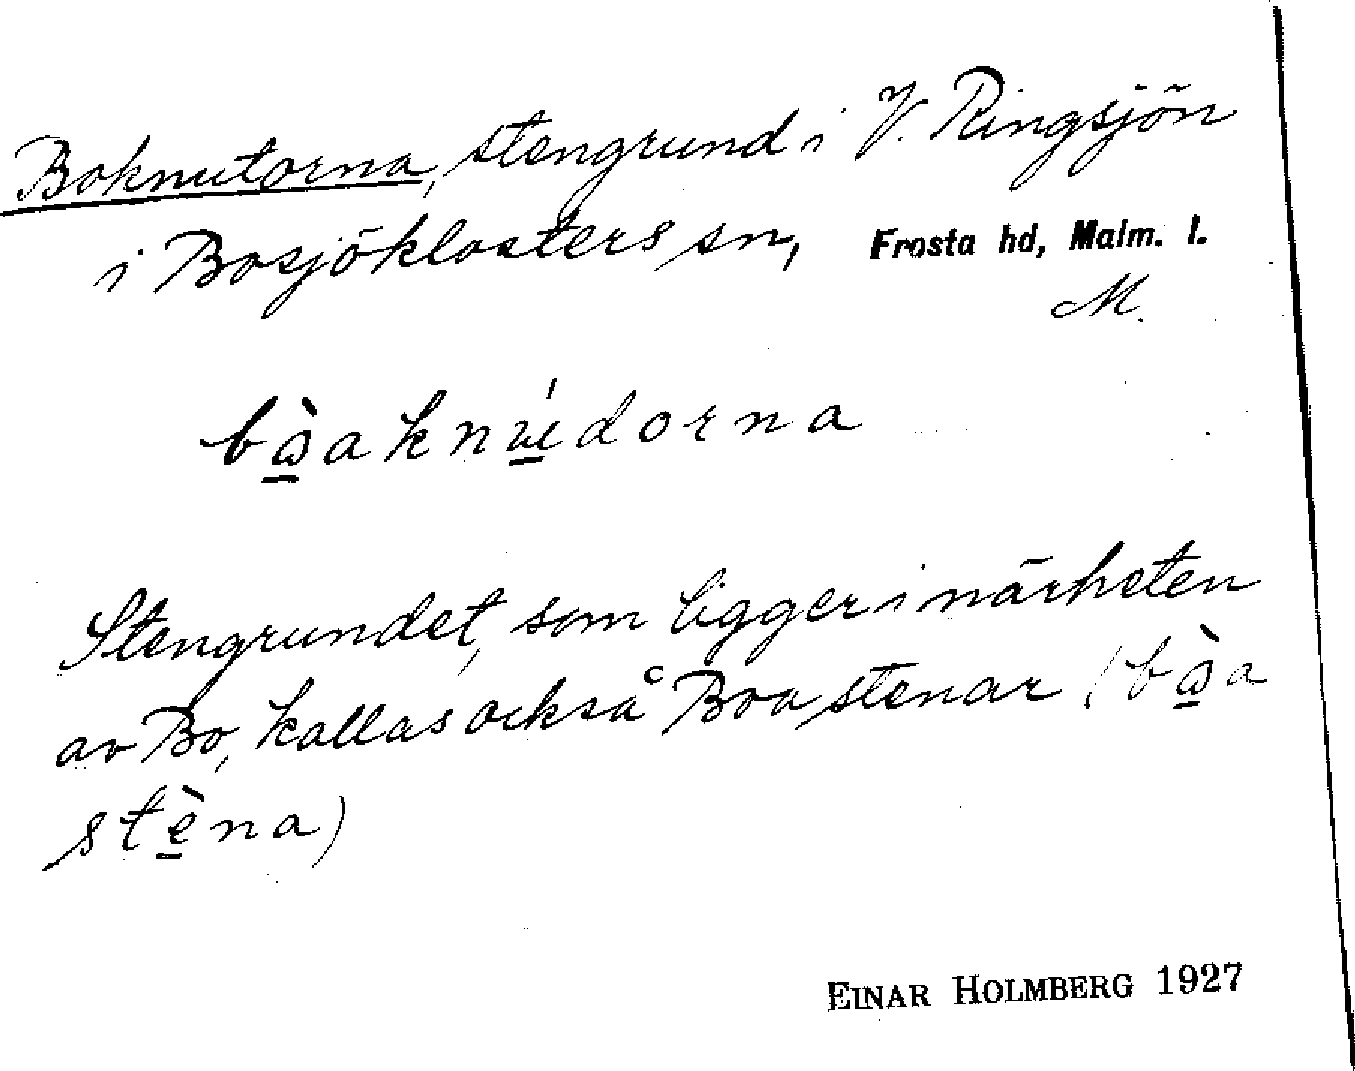 Boknutorna, stengrund i V. Ringsjön
i Bosjöklosters sn, Frosta hd, Malm. l.
M.
bὼ̱aknú̱dorna
Stengrundet, som ligger i närheten
av Bo, kallas också Boa stenar (bὼ̱a
stè̱na)
EINAR HOLMBERG 1927